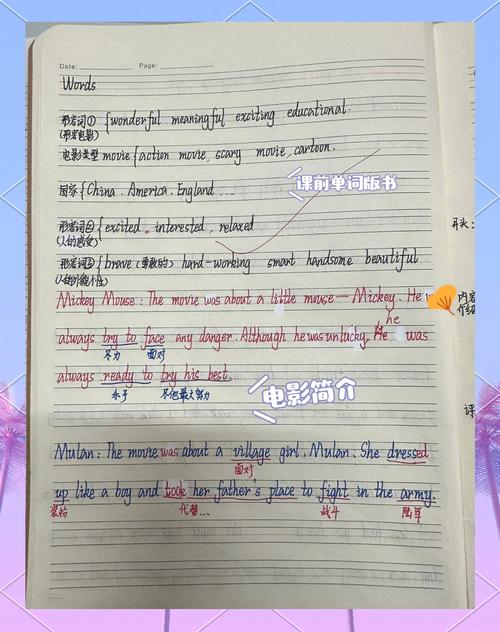 Date: Page:
Words
形容词① {wonderful meaningful exciting educational.
(形容电影)
电影类型 movie {action movie, scary movie, cartoon.
国家 {China. America. England...
课前单词版书
形容词② {excited, interested, relaxed
(人的感受)
形容词③ {brave (勇敢的) hard-working smart handsome beautiful
Mickey Mouse: The movie was about a little mouse— Mickey. He
always try to face any danger. Although he was unlucky, he was
尽力 面对
always ready to try his best.
乐于 尽他最大努力
电影简介
Mulan: The movie was about a village girl, Mulan. She dressed
面对
up like a boy and took her father's place to fight in the army.
装扮 代替... 战斗 陆军
开头:
内容
介绍